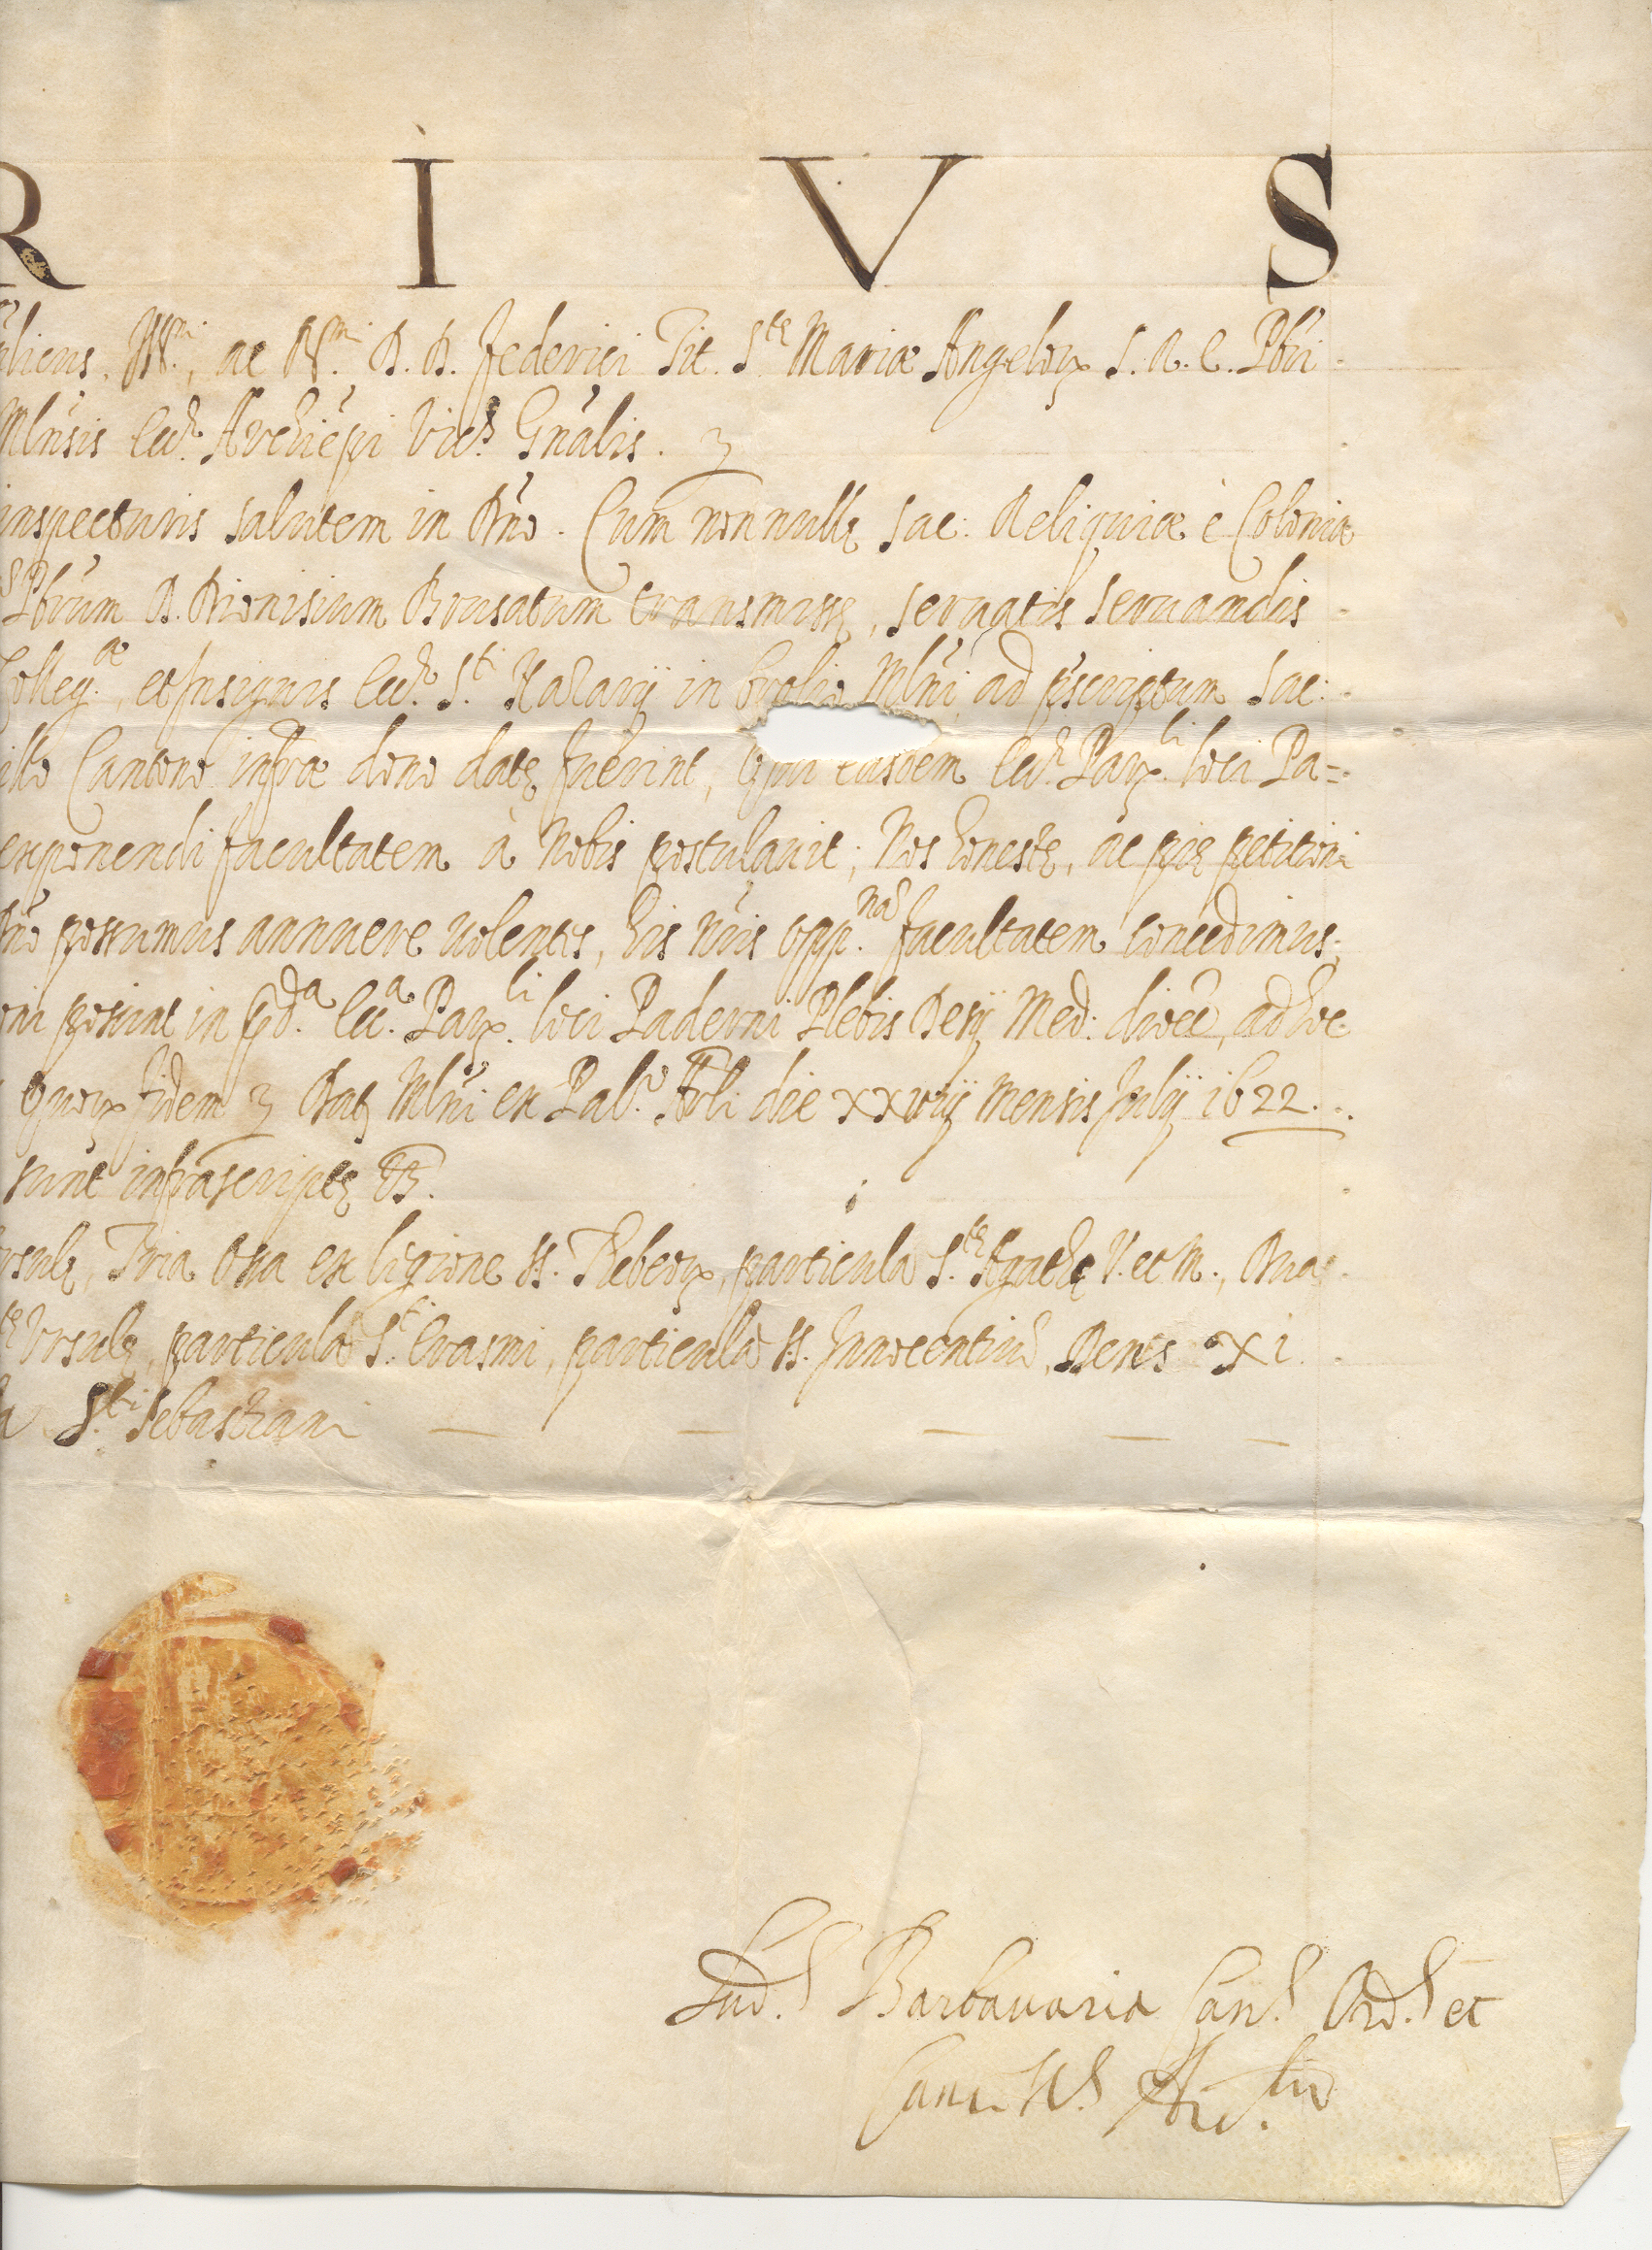 R I V S
Ill.mi, ac R.mi D. D. Federici Tit. S.tę Mariæ Angelorꝝ S. R. E. Pbri
Mlnsis Ecc.ę Archiepi Vic.s Gnalis.
inspecturis salutem in Dno. Cum nonnullę Sac: Reliquiæ è Colonia
Pbrum D. Dionisium Brusatum transmissę, servatis servandis
Colleg.æ, et Insignis Ecc.ę S.ti Nazarij in Brolio Mlni ad pscriptum Sac:
Cantono infra dono datę fuerint, easdem Ecc.ę Parꝝ.li loci Pa=
exponendi facultatem à Nobis postulavit; Nos honestę, ac pię petitioni
Dno possumus annuere volentes, his nris opp.nas facultatem concedimus;
possint in pd.a Ecc.a Parꝝ.li loci Paderni Plebis Desij Med: dioec, ad hoc
Quorꝝ fidem Dat Mlni ex Pal.o Arli die xxviij mensis Julij 1622.
sunt infrascriptę
Tria Ossa ex legione SS. Thebeorꝝ, particula S.tę Agathę V. et M.,
Ursulę, particula S.ti Erasmi, particula SS. Innocentium, Dens XI
S.ti Sebastiani
Lud.s Barbavaria Can.s Ord.s et
Canc. Ar.lis